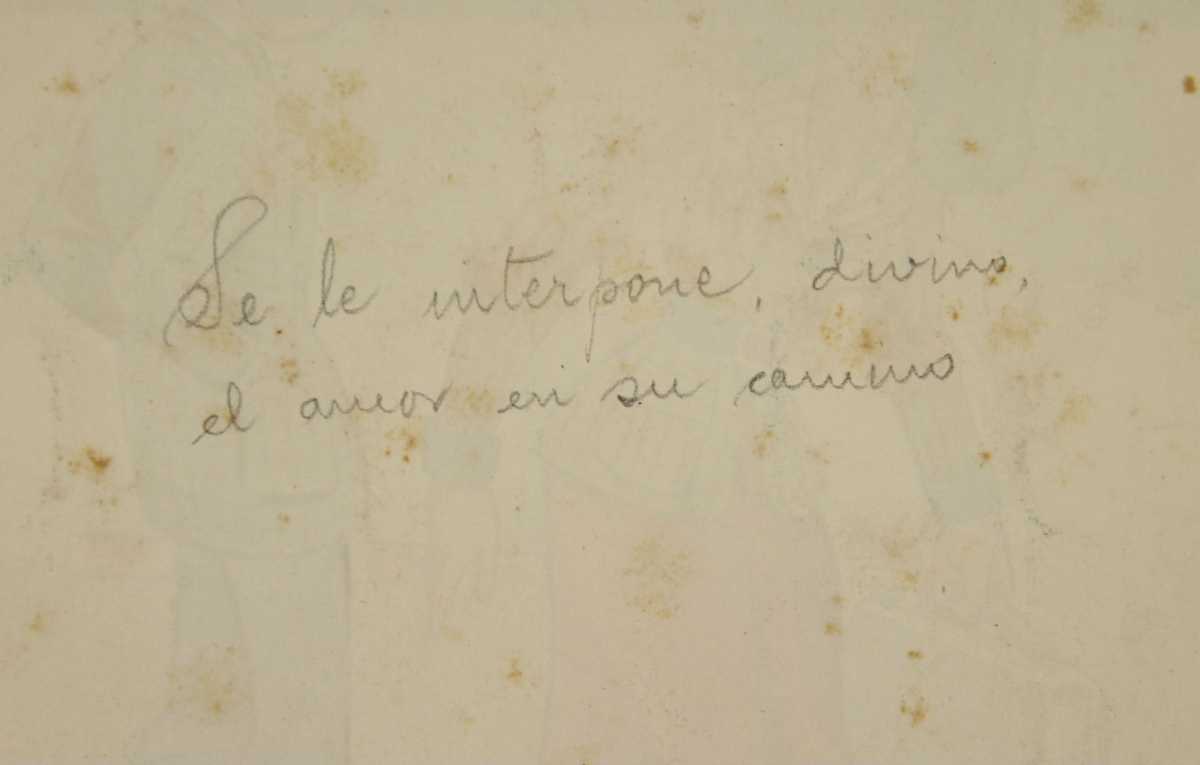 Se le interpone, divino,
el amor en su camino